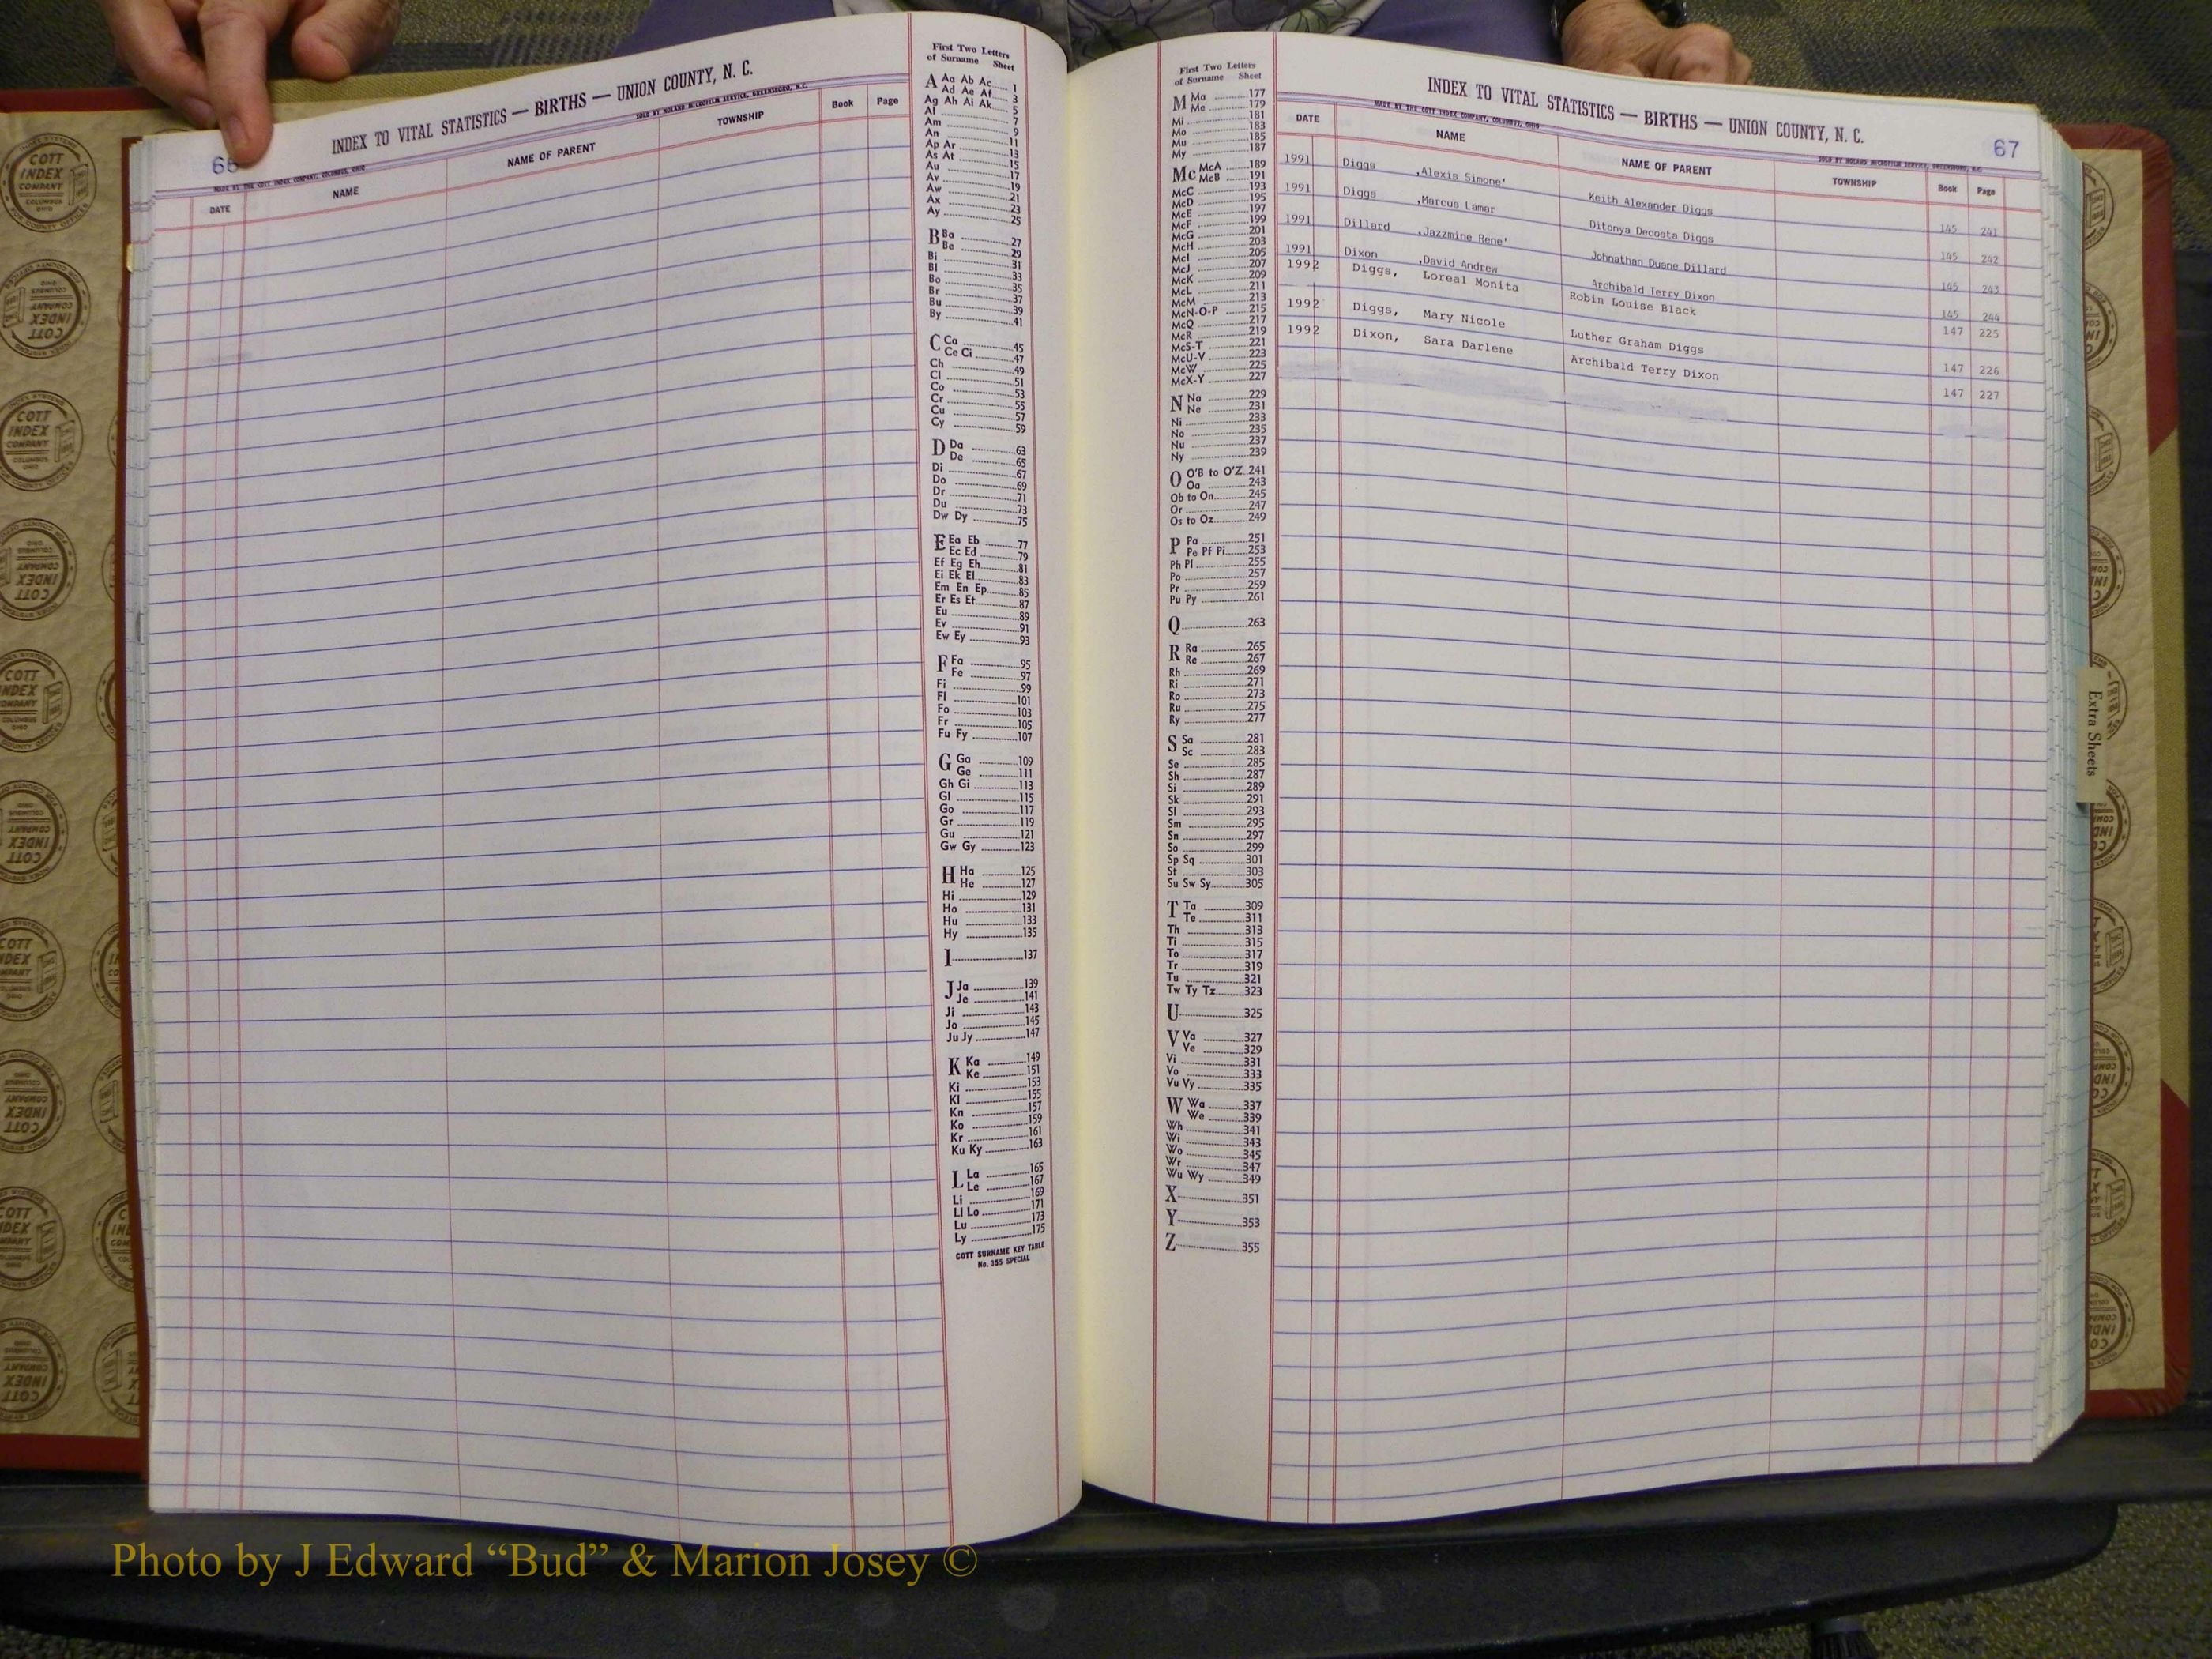 66
INDEX TO VITAL STATISTICS — BIRTHS — UNION COUNTY, N. C.
MADE BY THE COTT INDEX COMPANY, COLUMBUS, OHIO
SOLD BY NOLAND MICROFILM SERVICE, GREENSBORO, N.C.
DATE NAME NAME OF PARENT TOWNSHIP Book Page
First Two Letters
of Surname Sheet
A Aa Ab Ac 1
Ad Ae Af 3
Ag Ah Ai Ak 5
Al 7
Am 9
An 11
Ap Ar 13
As At 15
Au 17
Av 19
Aw 21
Ax 23
Ay 25
B Ba 27
Be 29
Bi 31
Bl 33
Bo 35
Br 37
Bu 39
By 41
C Ca 45
Ce Ci 47
Ch 49
Cl 51
Co 53
Cr 55
Cu 57
Cy 59
D Da 63
De 65
Di 67
Do 69
Dr 71
Du 73
Dw Dy 75
E Ea Eb 77
Ec Ed 79
Ef Eg Eh 81
Ei Ek El 83
Em En Ep 85
Er Es Et 87
Eu 89
Ev 91
Ew Ey 93
F Fa 95
Fe 97
Fi 99
Fl 101
Fo 103
Fr 105
Fu Fy 107
G Ga 109
Ge 111
Gh Gi 113
Gl 115
Go 117
Gr 119
Gu 121
Gw Gy 123
H Ha 125
He 127
Hi 129
Ho 131
Hu 133
Hy 135
I 137
J Ja 139
Je 141
Ji 143
Jo 145
Ju Jy 147
K Ka 149
Ke 151
Ki 153
Kl 155
Kn 157
Ko 159
Kr 161
Ku Ky 163
L La 165
Le 167
Li 169
Ll Lo 171
Lu 173
Ly 175
COTT SURNAME KEY TABLE
No. 355 SPECIAL
First Two Letters
of Surname Sheet
M Ma 177
Me 179
Mi 181
Mo 183
Mu 185
My 187
Mc McA 189
McB 191
McC 193
McD 195
McE 197
McF 199
McG 201
McH 203
McI 205
McJ 207
McK 209
McL 211
McM 213
McN-O-P 215
McQ 217
McR 219
McS-T 221
McU-V 223
McW 225
McX-Y 227
N Na 229
Ne 231
Ni 233
No 235
Nu 237
Ny 239
O O'B to O'Z 241
Oa 243
Ob to On 245
Or 247
Os to Oz 249
P Pa 251
Pe Pf Pi 253
Ph Pl 255
Po 257
Pr 259
Pu Py 261
Q 263
R Ra 265
Re 267
Rh 269
Ri 271
Ro 273
Ru 275
Ry 277
S Sa 281
Sc 283
Se 285
Sh 287
Si 289
Sk 291
Sl 293
Sm 295
Sn 297
So 299
Sp Sq 301
St 303
Su Sw Sy 305
T Ta 309
Te 311
Th 313
Ti 315
To 317
Tr 319
Tu 321
Tw Ty Tz 323
U 325
V Va 327
Ve 329
Vi 331
Vo 333
Vu Vy 335
W Wa 337
We 339
Wh 341
Wi 343
Wo 345
Wr 347
Wu Wy 349
X 351
Y 353
Z 355
INDEX TO VITAL STATISTICS — BIRTHS — UNION COUNTY, N. C.
67
MADE BY THE COTT INDEX COMPANY, COLUMBUS, OHIO
SOLD BY NOLAND MICROFILM SERVICE, GREENSBORO, N.C.
DATE NAME NAME OF PARENT TOWNSHIP Book Page
1991 Diggs ,Alexis Simone' Keith Alexander Diggs 145 241
1991 Diggs ,Marcus Lamar Ditonya Decosta Diggs 145 242
1991 Dillard ,Jazzmine Rene' Johnathan Duane Dillard 145 243
1991 Dixon ,David Andrew Archibald Terry Dixon 145 244
1992 Diggs, Loreal Monita Robin Louise Black 147 225
1992 Diggs, Mary Nicole Luther Graham Diggs 147 226
1992 Dixon, Sara Darlene Archibald Terry Dixon 147 227
Extra Sheets
COTT
INDEX
COMPANY
COLUMBUS
OHIO
Photo by J Edward “Bud” & Marion Josey ©